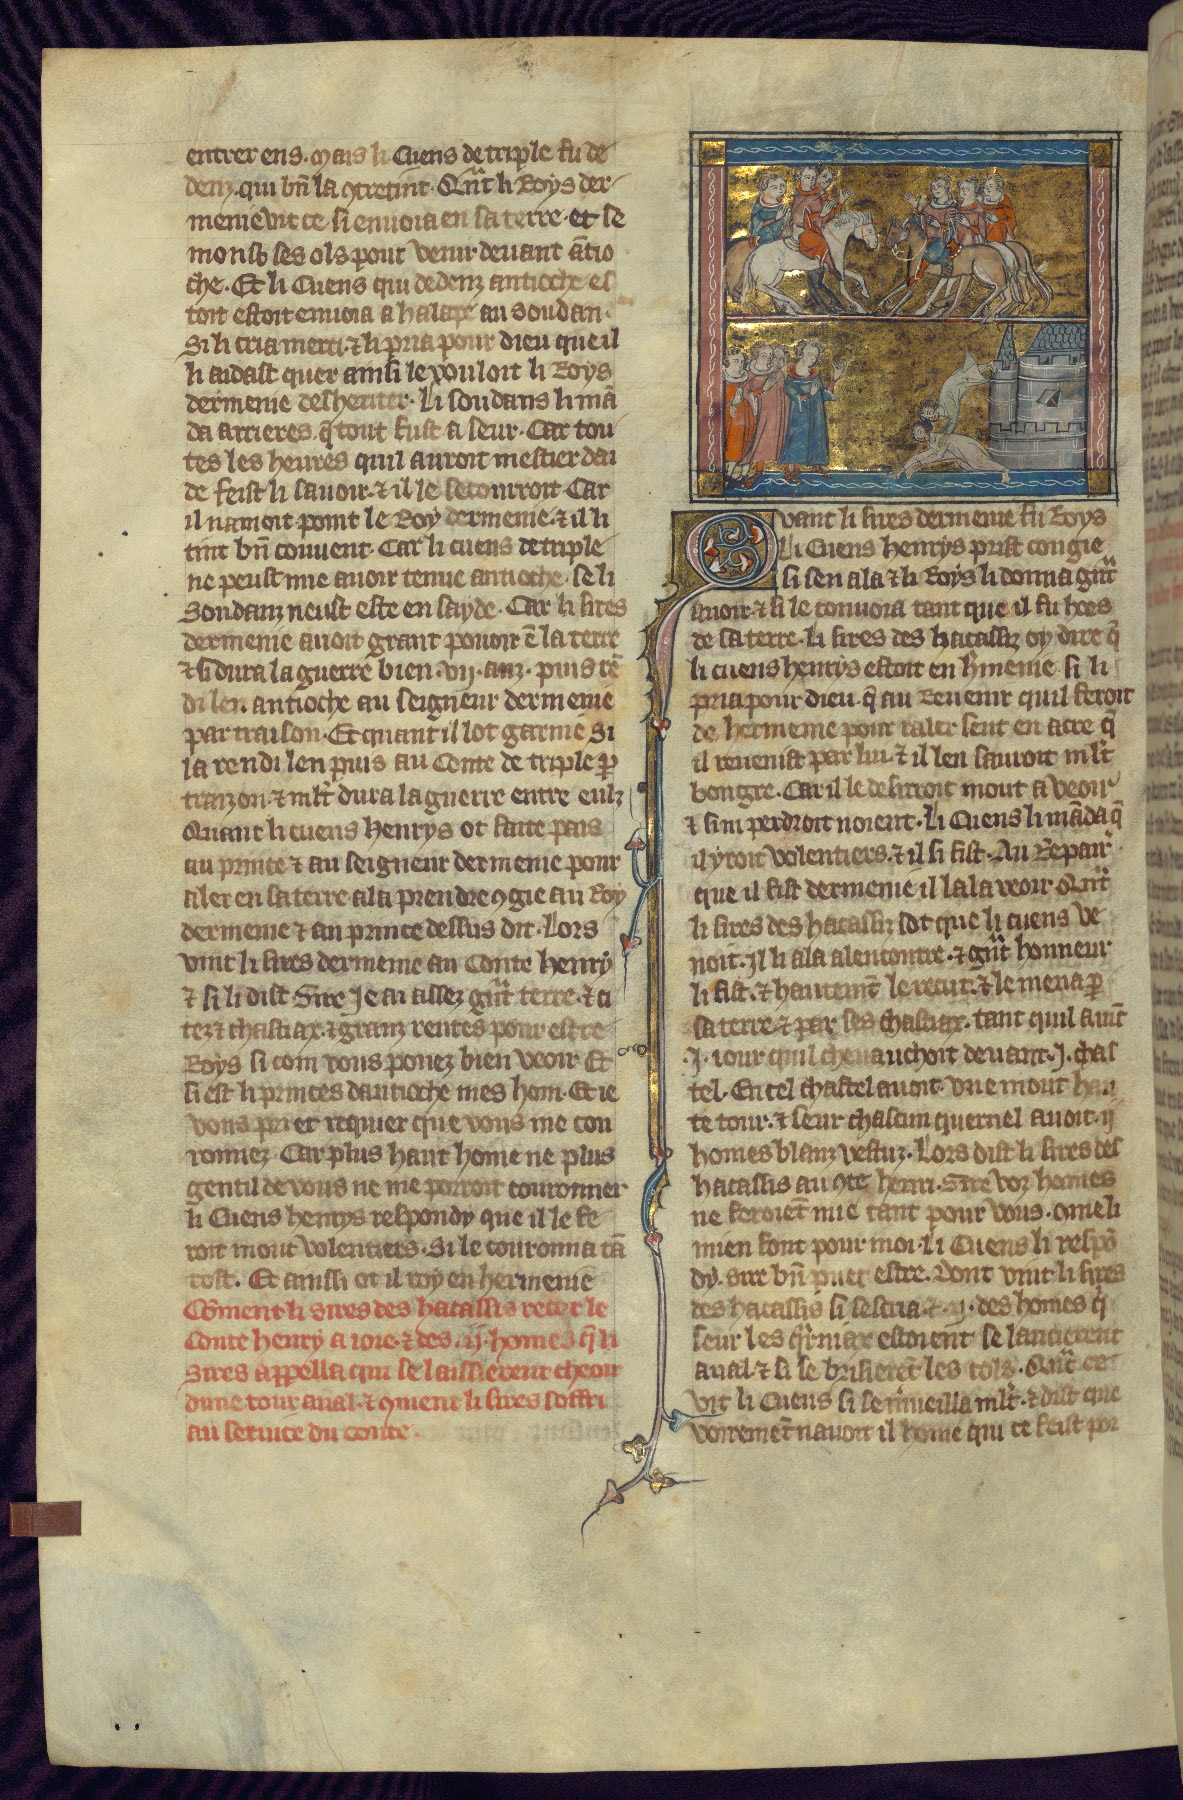 entrer ens. mais li Cuens de triple fu de
denz. qui bñ la ꝯtretint. Qñt li Roys der
menie vit ce. si enuoia en sa terre. et se
monst ses ols pour venir deuant ātio
che. Et li Cuens qui dedenz antioche es
toit estoit enuoia a halape au soudan.
Si li cria merci. ⁊ li pria pour dieu que il
li aidast quer ainsi le vouloit li Roys
dermenie desheriter. Li soudans li mā
da arrieres. q̄ tout fust a seur. Car tou
tes les heures quil auroit mestier dai
de feist li sauoir. ⁊ il le secourroit. Car
il namoit point le Roy dermenie. ⁊ il li
tint bñ couuent. Car li cuens de triple
ne peust mie auoir tenue antioche. se li
Soudanz neust este en sayde. Car li sires
dermenie auoit grant pouoir ē la terre
⁊ si dura la guerre bien .vij. anz. puis rē
di len antioche au seigneur dermenie
par traison. Et quant il lot garnie si
la rendi len puis au Conte de triple ꝑ
traizon. ⁊ mlt dura la guerre entre eulz
Quant li cuens Henrys ot faite pais
au prince ⁊ au seigneur dermenie pour
aler en sa terre ala prendre ꝯgie au Roy
dermenie ⁊ au prince dessus dit. Lors
vint li sires dermenie au Conte henry
⁊ si li dist. Sire Je ai assez gñt terre. ⁊ ci
tez ⁊ chastiax. ⁊ granz rentes pour estre
Roys si com vous pouez bien veoir. Et
si est li princes dantioche mes hom. Et ie
vous pri et requier que vous me cou
ronnez. Car plus haut home ne plus
gentil de vous ne me porroit couronner
li Cuens henrys respondy que il le fe
roit mout volentiers. Si le couronna tā
tost. Et ainssi ot il roy en hermenie
Cōment li sires des hacassis recet le
Conte henry a ioie. ⁊ des .ij. homes q̄ li
sires appella qui se laissierent cheoir
dune tour aual. ⁊ ꝯment li sires soffri
au seruice du conte.
Quant li sires dermenie fu Roys
Li Cuens henrys prist congie
si sen ala ⁊ li Roys li donna gñt
auoir. ⁊ si le conuoia tant que il fu hors
de sa terre. li sires des hacassiz oy dire q̄
li cuens henrys estoit en hmenie. si li
pria pour dieu. q̄ au Reuenir quil feroit
de hermenie pour raler sent en acre q̄
il reuenist par lui. ⁊ il len sauroit mlt
bongre. Car il le desirroit mout a veoir
⁊ si ni perdroit noient. Li Cuens li māda q̄
il yroit volentiers. ⁊ il si fist. Au Repair
que il fist dermenie il lala veoir. Qñt
li sires des hacassiz sot que li cuens ve
noit. Jl li ala alencontre. ⁊ gñt honneur
li fist. ⁊ hautemēt le recut. ⁊ le mena ꝑ
sa terre ⁊ par ses chastiax. tant quil auīt
.J. iour quil cheuauchoit deuant .J. chas
tel. En cel chastel auoit. vne mout hau
te tour. ⁊ seur chascun quernel auoit .ij
homes blanz vestuz. Lors dist li sires des
hacassis au ꝯte henri. Sire voz homes
ne feroiēt mie tant pour vous. ꝯme li
mien font pour moi. li Cuens li respō
dy. sire bñ puet estre. Dont vint li sires
des hacassis si sescria. ⁊ .ij. des homes q̄
seur les q̄rniax estoient se lancierent
aual ⁊ si se briserēt les cols. Qñt ce
vit li Cuens si se mueilla mlt. ⁊ dist que
voiremēt nauoit il home qui ce feist por